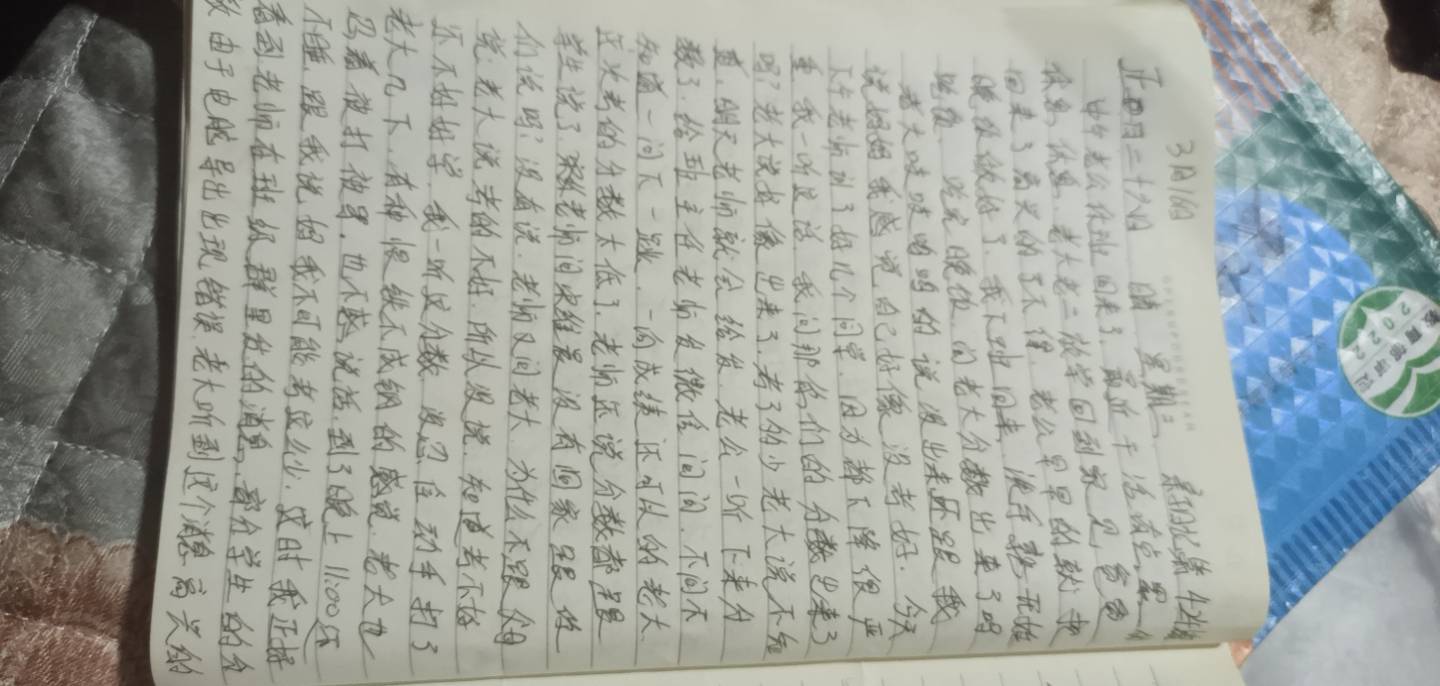 3月16日
正月二十六日 晴 星期三
中午老公值班回来了,最近干活有点累
休息休息,老大老二放学回到家见爸爸
回来了高兴的了不得,老公早早的就把
晚饭做好了,我下班回来,洗手,
吃饭,吃完晚饭问老大分数出来了吗
老大吱吱呜呜的说没出来还跟我
说妈妈我感觉自己好像没考好,今天
下午老师训了好几个同学,因为都下降很严
重,我一听这话,我问那你们的分数出来了
吗?老大说好像出来了,考了的少老大说不知
道,明天老师就会给发,老公一听
给班主任老师发微信问问,不问不
知道一问下一跳,一向成绩还可以的老大
这次考的分数太低了,老师还说分数都跟
学生说了,老师问决维是没有回家跟你
们说吗?没有说,老师又问老大,为什么不跟父母
说,老大说考的不好,所以没说,知道考不好
还不好好学,我一听这分数,没忍住动手打了
老大几下,有种恨铁不成钢的感觉,老大也
忍着被打被骂,也不敢说话,到了晚上11:00还
不睡,跟我说妈我不可能考这么少,这时我正好
看到老师在班级群里发的消息,部分学生的分
数由于电脑导出出现错误,老大听到这个消息高兴的
2022